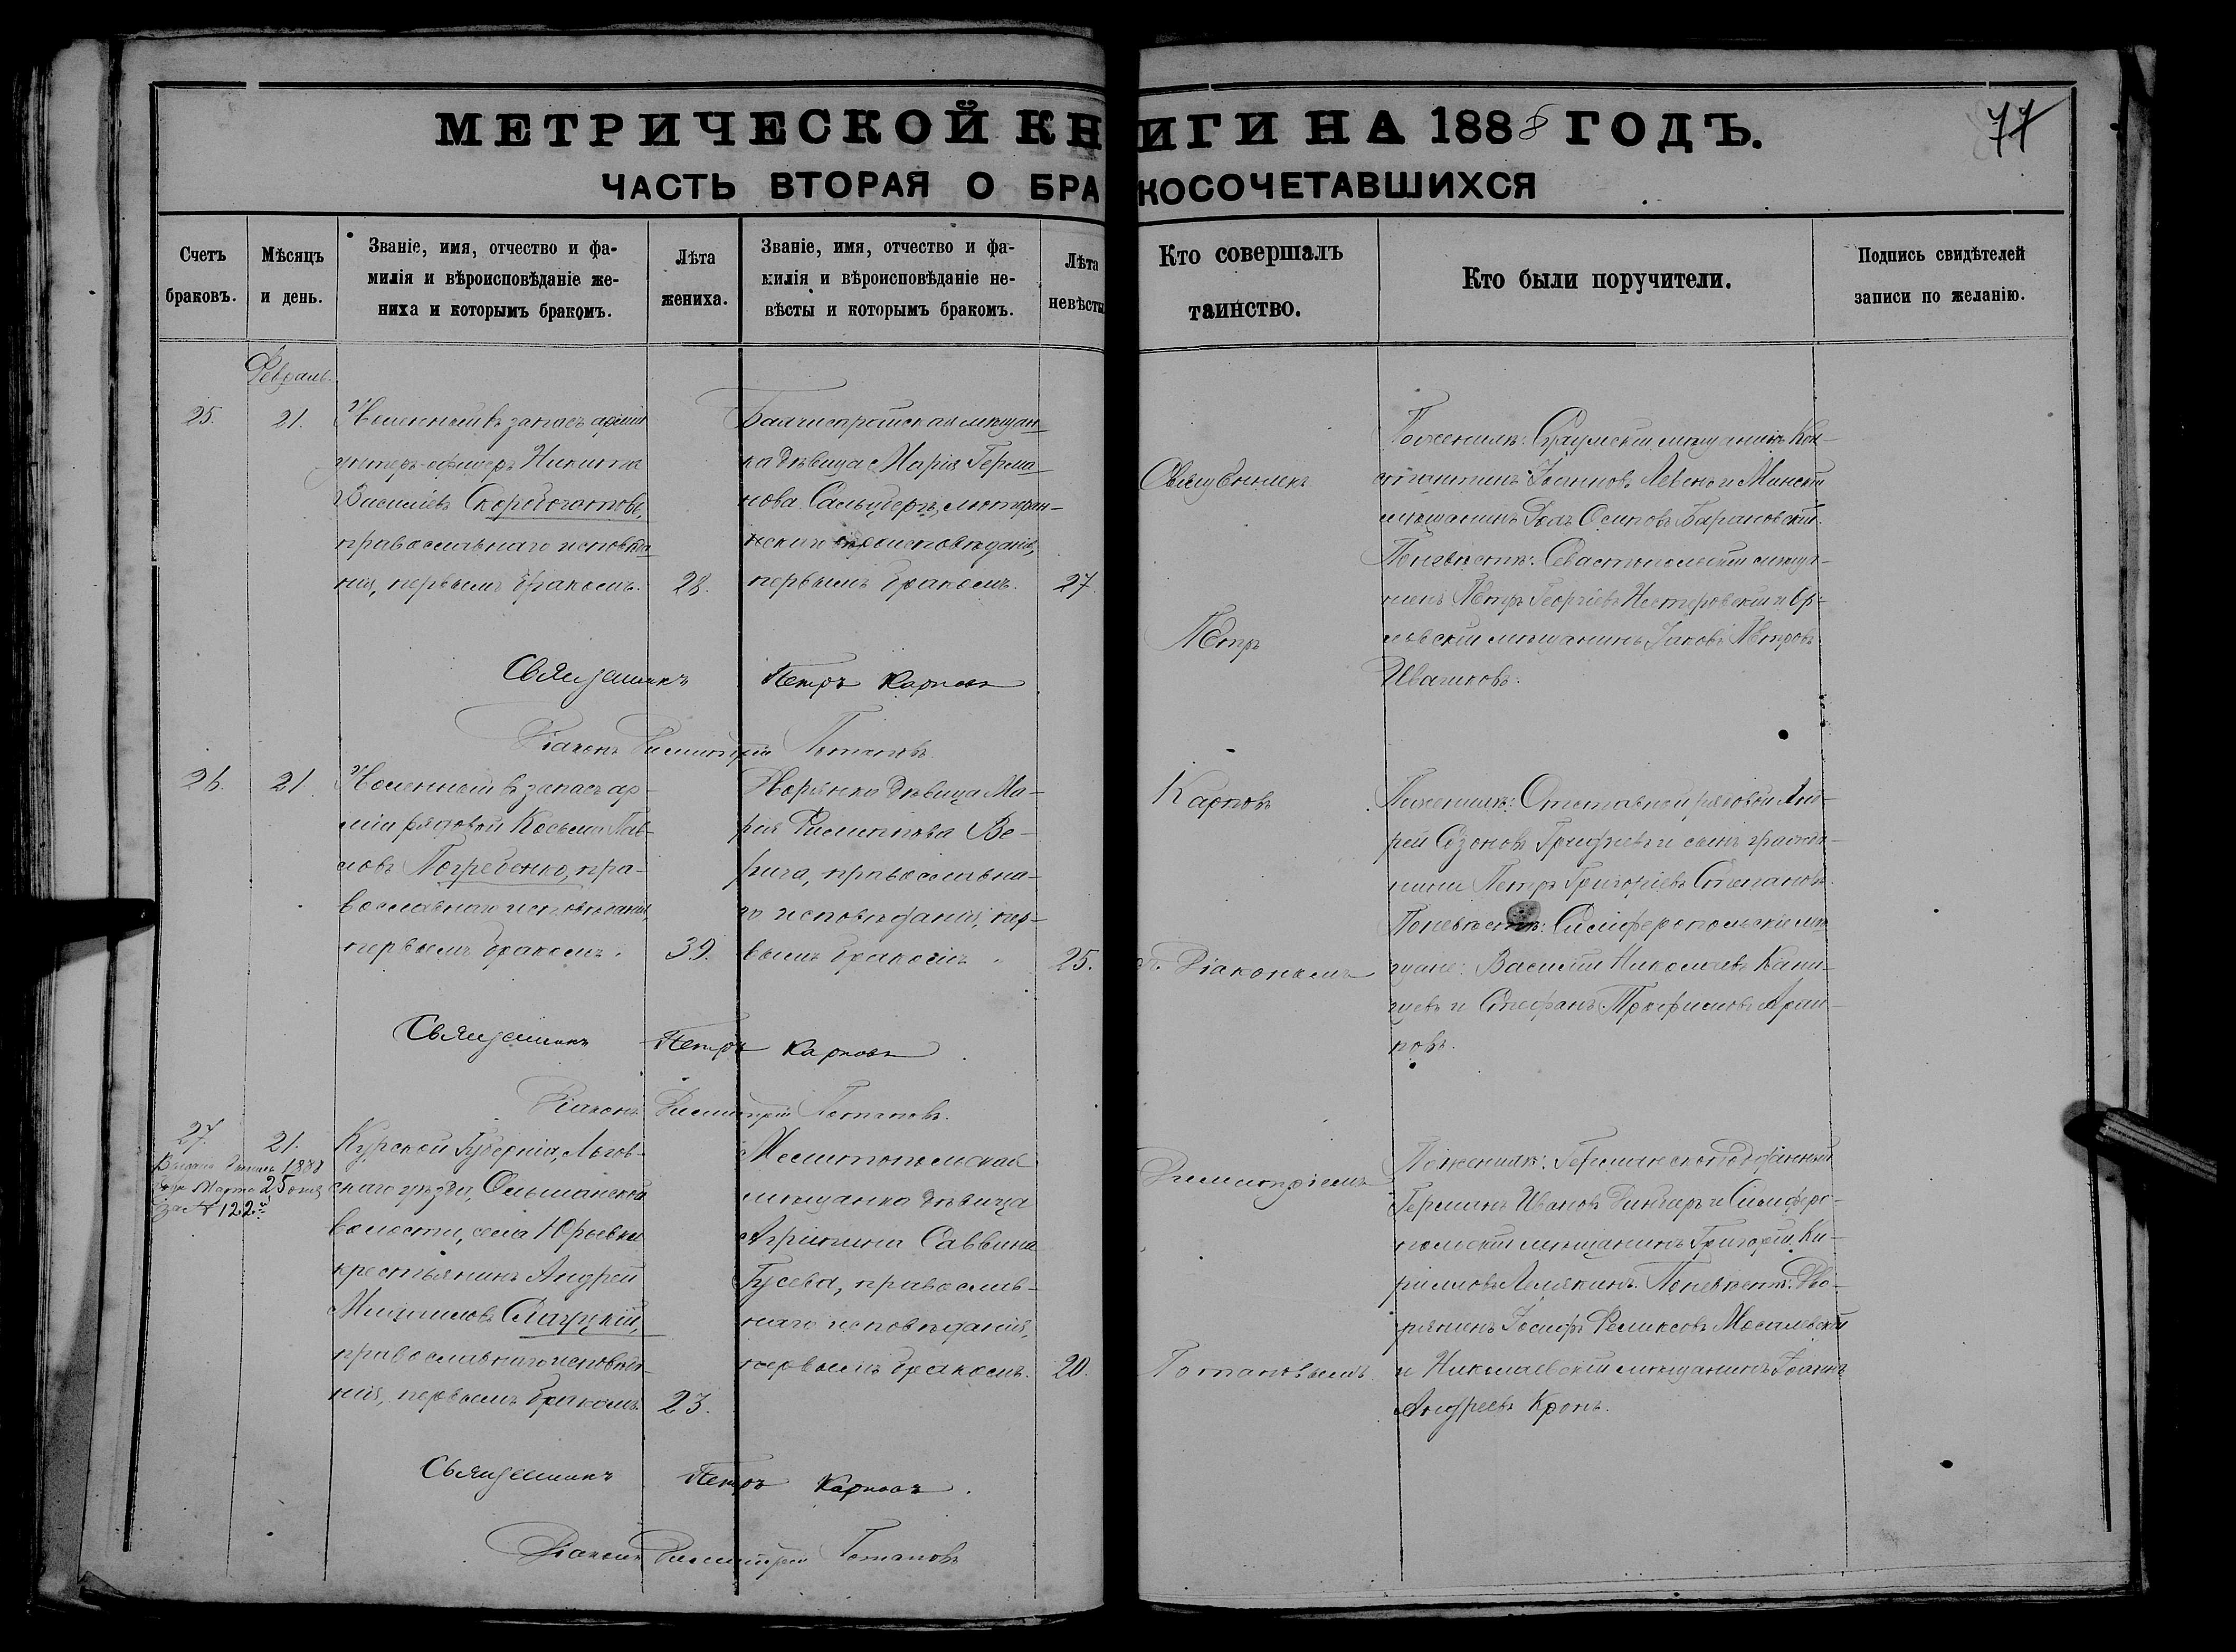 МЕТРИЧЕСКОЙ КНИГИ НА 1888 ГОДЪ.
77
ЧАСТЬ ВТОРАЯ О БРАКОСОЧЕТАВШИХСЯ
Счетъ
браковъ.
Мѣсяцъ
и день.
Званіе, имя, отчество и фа-
милія и вѣроисповѣданіе же-
ниха и которымъ бракомъ.
Лѣта
жениха.
Званіе, имя, отчество и фа-
милія и вѣроисповѣданіе не-
вѣсты и которымъ бракомъ.
Лѣта
невѣсты
Кто совершалъ
таинство.
Кто были поручители.
Подпись свидѣтелей
записи по желанію.
Февраль.
25.
21.
Уволенный въ запасъ арміи
унтеръ-офицеръ Никита
Василіевъ Скоробогатовъ,
православнаго исповѣда
нія, первымъ бракомъ.
28.
Бахчисарайская мѣщан
ка дѣвица Марія Герма
нова Сальцбергъ, лютеран-
первымъ бракомъ.
27
Священникъ
Петръ
Карповъ
съ Діакономъ
Димитріемъ
Потаповымъ.
По женихѣ: мѣщанинъ Кон-
стантинъ Іоанновъ и Минскій
мѣщанинъ Осиповъ Барановскій.
По невѣстѣ: Севастопольскій мѣща-
нинъ Петръ Георгіевъ Нестеровскій и Ор-
ловскій мѣщанинъ Іаковъ Петровъ
Ивашковъ.
Священникъ Петръ Карповъ
Діаконъ Димитрій Потаповъ.
26.
21.
Уволенный въ запасъ ар-
міи рядовой Косьма Пав-
ловъ Погребенко, пра-
вославнаго исповѣданія,
первымъ бракомъ.
39.
Дворянка дѣвица Ма-
рія Филиппова Ве-
рига, православна-
го исповѣданія, пер-
вымъ бракомъ.
25.
По женихѣ: Отставной рядовой Анд-
рей Созоновъ и сынъ гражда-
нина Петръ Григоріевъ Степановъ.
По невѣстѣ: Симферопольскіе мѣ
щане: Василій Николаевъ Кани-
щевъ и Стефанъ Трофимовъ
Священникъ Петръ Карповъ
Діаконъ Димитрій Потаповъ.
27.
21.
1888
Марта 25 дня
за № 122.
Курской Губерніи, Льгов-
скаго уѣзда, Ольшанской
волости, села Юрьевки
крестьянинъ Андрей
православнаго исповѣда-
нія, первымъ бракомъ.
23.
Мелитопольская
мѣщанка дѣвица
Агрипина Саввина
Гусева, православ-
наго исповѣданія,
первымъ бракомъ.
20.
По женихѣ: Германскоподданный
Германъ Ивановъ и Симферо-
польскій мѣщанинъ Григорій Ки-
рилловъ Лемякинъ. По невѣстѣ: Дво-
рянинъ Іосифъ Феликсовъ Мосалевскій
и Николаевскій мѣщанинъ Іоаннъ
Андреевъ Кронъ.
Священникъ Петръ Карповъ.
Діаконъ Димитрій Потаповъ